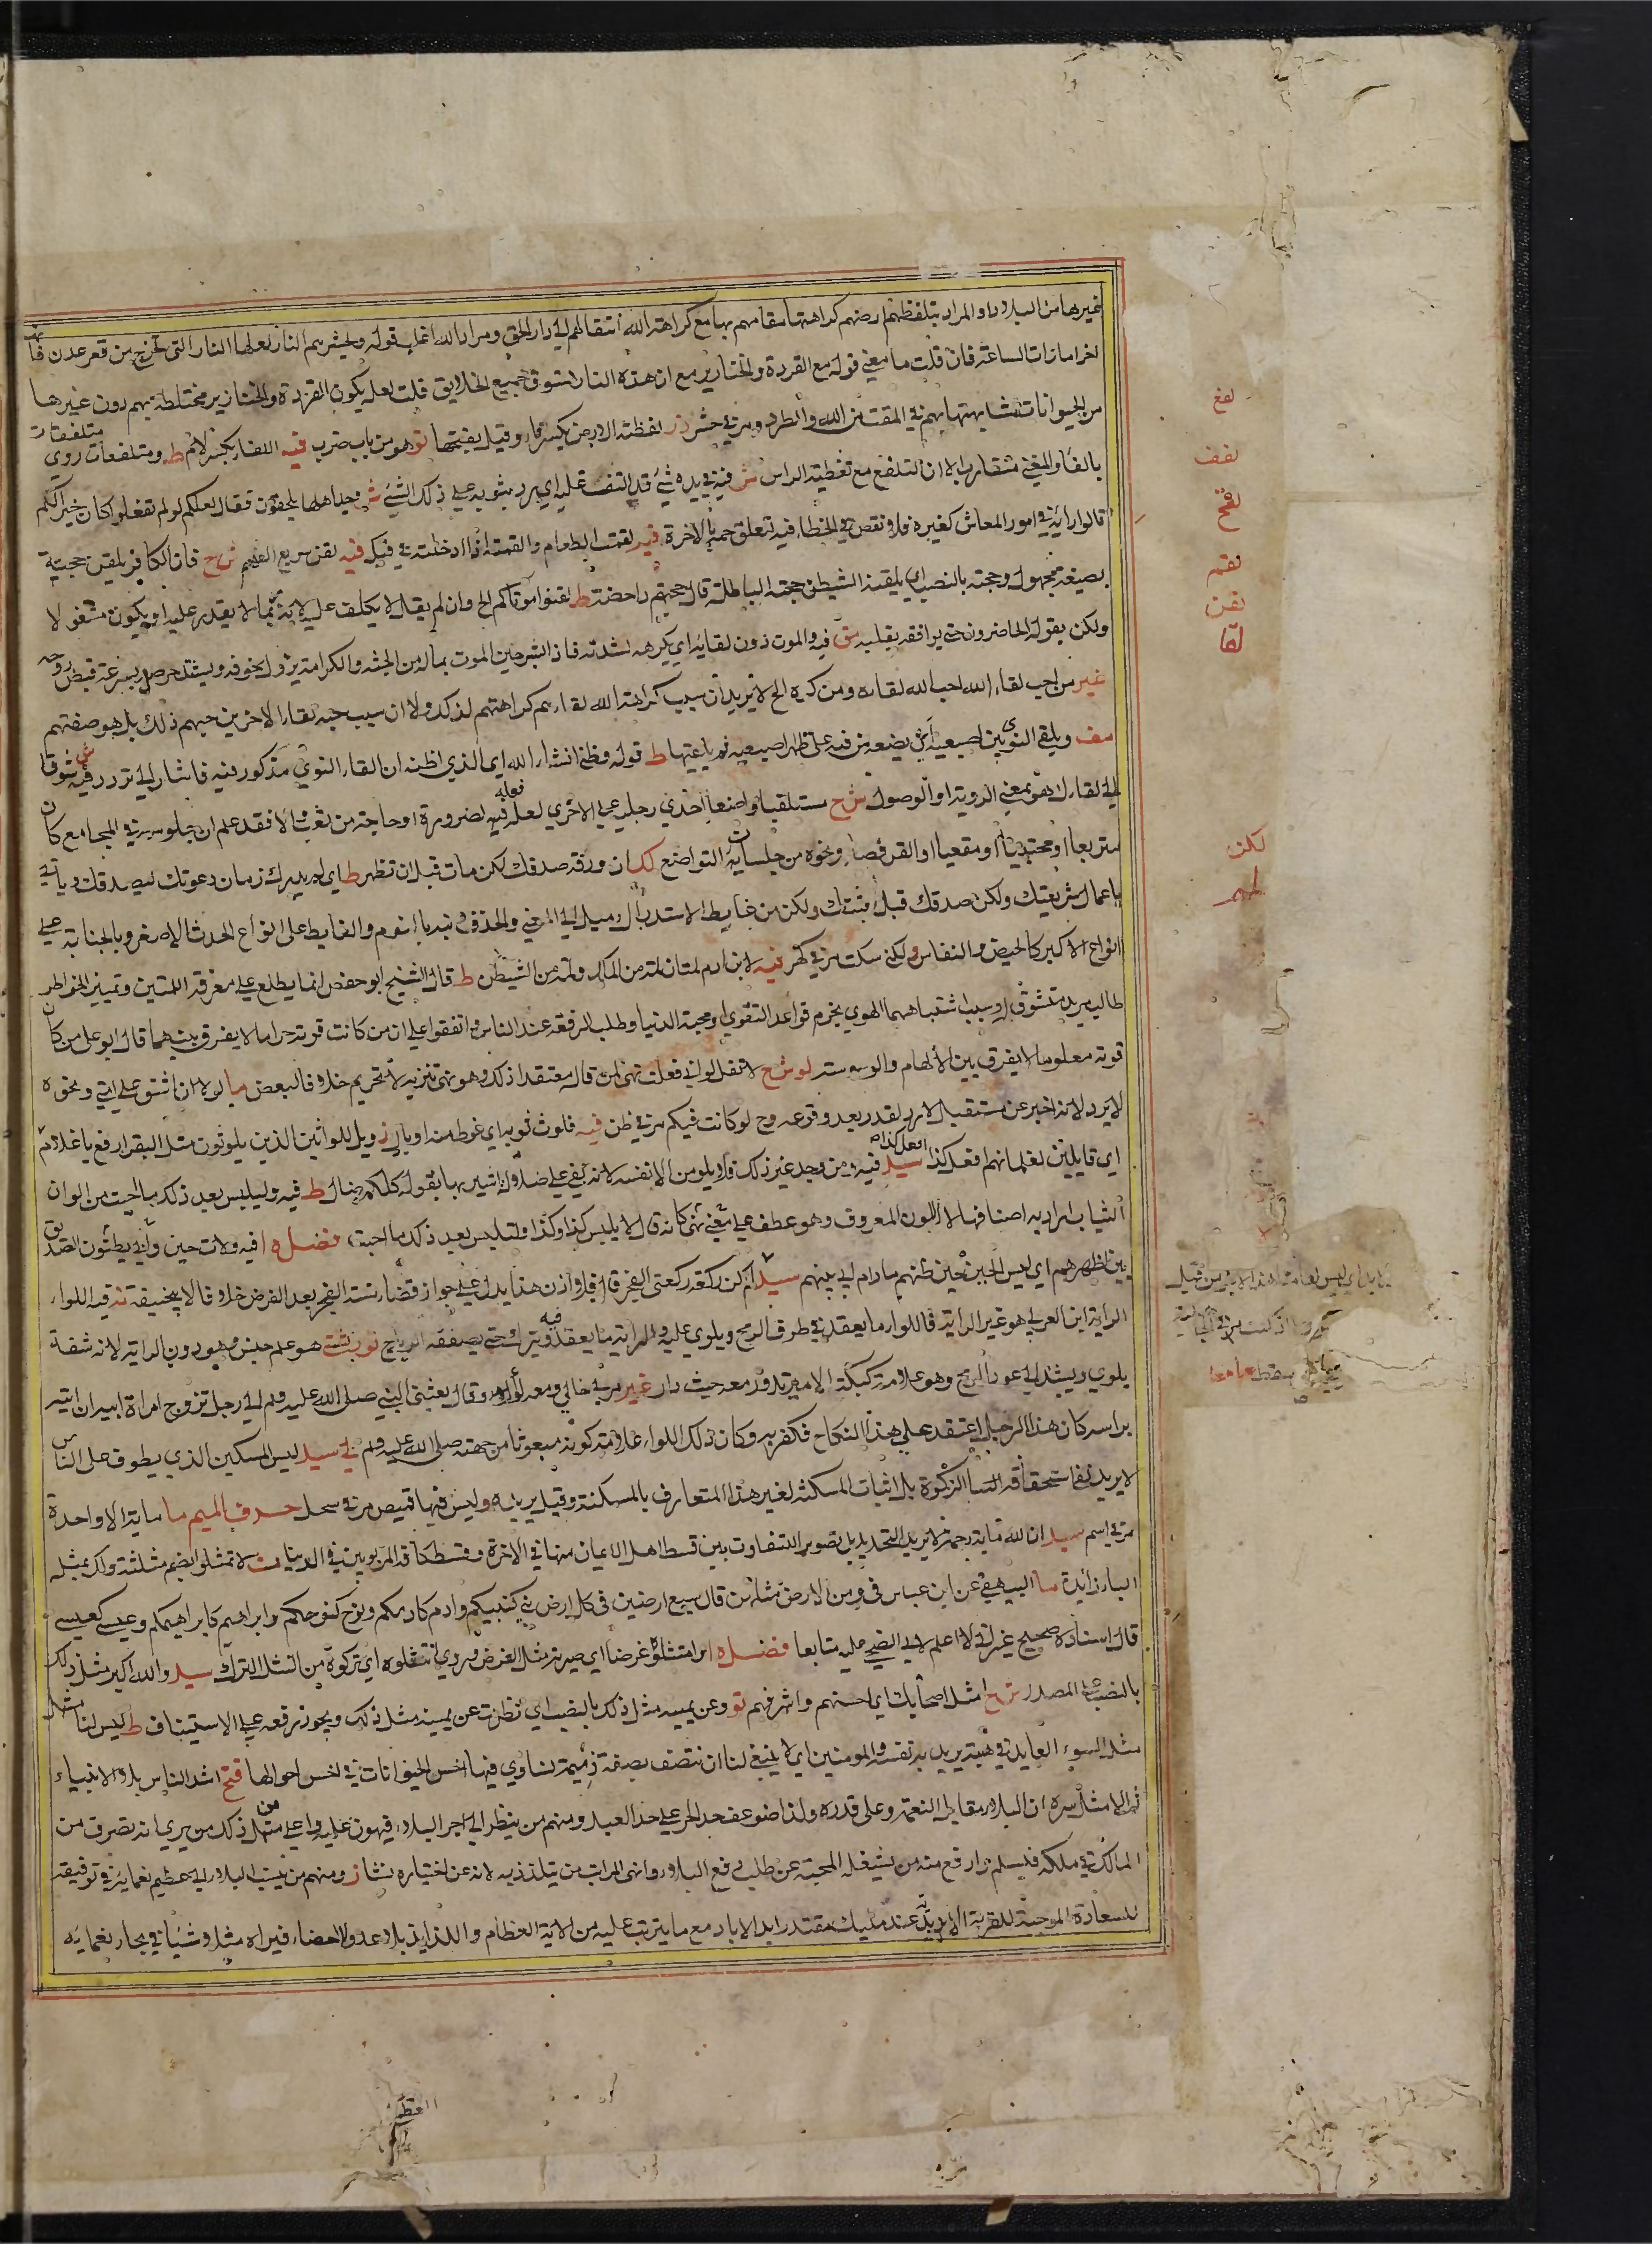 غيرها من البلاد او المراد بتلفظهم ارضهم كراهتها مقامهم بها مع كراهة الله انتقالهم الى دار الحق ومراد الله اغلب قوله وتحشرهم النار لعلها النار التي تخرج من قعر عدن فانه
اخر امارات الساعة فان قلت ما معني قوله مع القردة والخنازير مع ان هذه النار تسوق جميع الخلايق قلت لعله يكون القردة والخنازير مختلطة بهم دون غيرها
من الحيوانات لمشابهتها بهم في المقت من الله والطرد ومر في حشر در لفظته الارض بكسر فاء وقيل بفتحها تو هو من باب ضرب فيه اللفاع بكسر لام ط ومتلفعات روي متلففات
بالفاء والمعني متقارب الا ان التلفع مع تغطية الراس ش فيه في يده شئ قد التف عليه اي يرد بثوبه علي ذلك الشئ
قالوا رايه في امور المعاش كغيره فلا نقص في الخطاء فيه لتعلق همه بالاخرة فيه لقمت الطعام والقمته اذا ادخلته في فيك فيه لقن سريع الفهم ش ح فان الكافر يلقن حجته
بصيغة مجهول وحجته بالنصب اي يلقنه الشيطن حجته الباطلة قال حجتهم داحضة ط لقنوا موتاكم الخ وان لم يقل لا يكلف عليه لانه ربما لا يقدر عليه او يكون مشغولا
ولكن يقوله الحاضرون حتي يوافقه بقلبه مق فيه والموت دون لقائه اي يكرهه لشدته فاذا بشر حين الموت بماله من الجنة والكرامة يزول خوفه ويشتد حرصه بسرعة قبض روحه
غير من احب لقاء الله احب الله لقاءه ومن كره الخ لا يريد ان سبب كراهة الله لقاءهم كراهتهم لذلك ولا ان سبب حبه لقاء الاخرين حبهم ذلك بل هو صفتهم
مف ويلقي النوي بين اصبعيه اي يضعه من فيه على ظهر اصبعيه ثم ط قوله وظني انشاء الله اي الذي اظنه ان القاء النوي مذكور فيه فاشار الى تردد فيه ش شوقا
الي لقائك هو بمعني الروية او الوصول ش ح مستلقيا واضعا احدي رجليه علي الاخري لعله فعله لضرورة او حاجة من تعب والا فقد علم ان جلوسه في المجامع كان
متربعا او محتبيا او مقعيا او القرفصاء ونحوه من جلسات التواضع لك ان ورقة صدقك لكن مات قبل ان تظهر ط اي لم يدرك زمان دعوتك ليصدقك وياتي
باعمال شريعتك ولكن صدقك قبل مبعثك ولكن من غايط لاستدراك وميل الى المعني والحذف ونبه بالنوم والغايط على انواع الحدث الاصغر وبالجنابة علي
انواع الاكبر كالحيض والنفاس ولكني سكت مر في كهر فيه لابن ادم لمتان لمة من الملك ولمة من الشيطن ط قال الشيخ ابو حفص انما يطلع علي معرفة اللمتين وتمييز الخواطر
طالب مريد متشوق وسبب اشتباههما الهوي بخرم قواعد التقوي ومحبة الدنيا وطلب الرفعة عند الناس واتفقوا علي ان من كانت قوته حراما لا يفرق بينهما قال ابو علي من كان
قوته معلوما لا يفرق بين الالهام والوسوسة لو ش ح لا تقل لو اني فعلت نهي لمن قاله معتقدا ذلك وهو نهي تنزيه لا تحريم خلافا لبعض ما لولا ان اشق علي امتي ونحوه
لا يرد لانه اخبر عن مستقبل لا رد لقدر بعد وقوعه وح لو كانت فيكم مر في ظن فيه فلوث ثوبه اي غوطه من اوبال ز ويل للواثين الذين يلوثون مثل البقر ارفع يا غلام
اي قايلين لغلمانهم افعل كذا افعل كذا سيد فيه ومن وجد غير ذلك فلا يلومن الا نفسه لانه بقي علي ضلاله اشير بها بقوله كلكم ضال ط فيه وليلبس بعد ذلك ما احبت من الوان
الثياب اراد به اصنافها لا اللون المعروف وهو عطف علي معني نهي كانه قال لا يلبس كذا وكذا ولتلبس بعد ذلك ما احبت فضل ه فيه ولات حين
بين اظهرهم اي ليس الحين حين ظنهم مادام لي بينهم سيد لم اكن ركعة ركعتي الفجر قال فلا اذن هذا يدل علي جواز قضاء سنة الفجر بعد الفرض خلافا لابي حنيفة نه فيه اللواء
الراية ابن العربي هو غير الراية فاللواء ما يعقد في طرف الرمح ويلوي عليه والراية ما يعقد فيه ويترك حتي يصفقه الرياح تو ربشت هو علم جيش وهو دون الراية لانه شقة
يلوي ويشد الي عود الرمح وهو علامة كبكبة الامير تدور معه حيث دار غير مر بي خالي ومعه لواء وقال بعثني النبي صلى الله عليه وسلم الي رجل تزوج امراة ابيه ان اتيه
براسه كان هذا الرجل اعتقد علي هذا النكاح فكفر به وكان ذلك اللواء علامة كونه مبعوثا من جهته صلى الله عليه وسلم لي سيد ليس المسكين الذي يطوف علي الناس
لا يريد نفي استحقاقه الزكوة بل اثبات المسكنة لغير هذا المتعارف بالمسكنة وقيل يريد به وليس فيها قميص مر في سحل حرف الميم ما ماية الا واحدة
مر في اسم سيد ان لله ماية رحمة لا يريد التحديد بل تصوير التفاوت بين قسط اهل الايمان منها في الاخرة وقسط كافة المربوبين في الدنيا مث لا تمثلوا بضم مثلثة
الباء زائدة ما البيهقي عن ابن عباس في ومن الارض مثلهن قال سبع ارضين في كل ارض نبي كنبيكم وادم كادمكم ونوح كنوحكم وابراهيم كابراهيمكم وعيسي كعيسي
قال اسناده صحيح غير اني لا اعلم لابي الضحي عليه متابعا فضل ه امرا متثلوه غرضا اي صيرته مثل الغرض وروي انتقلوه اي تركوه من النشل الترك سيد والله اكبر مثل ذلك
بالنصب على المصدر ش ح امثل اصحابك اي احسنهم واشرفهم تو وعن يمينه مثل ذلك بالنصب اي نظرت عن يمينه مثل ذلك ويجوز رفعه علي الاستيناف ط ليس لنا مثل
مثل السوء العايد في هبته يريد به نفسه والمومنين اي لا ينبغي لنا ان نتصف بصفة ذميمة تساوي فيها اخس الحيوانات في اخس احوالها فتح اشد الناس بلاء الانبياء
ثم الامثل سره ان البلاء مقابل النعمة وعلى قدره ولذا ضوعف حد الحر علي حد العبد ومنهم من ينظر الي اجر البلاء فيهون عليه واعلي من ذلك من يري انه تصرف من
المالك في ملكه فيسلم وارفع منه من يشغله المحبة عن طلب رفع البلاء وانهي المراتب من يتلذذ به لانه عن اختياره نشا ز ومنهم من ينسب البلاء الي عظيم نعمائه في توفيقه
للسعادة الموجبة للقربة الابدية عند مليك مقتدر ابد الاباد مع ما يترتب عليه من الآية العظام واللذايذ بلا عد ولا احصاء فيراه مثلا وشيا في بحار نعمائه
لفع
لفف
لقح
لقم
لقن
لقا
لكن
لمم